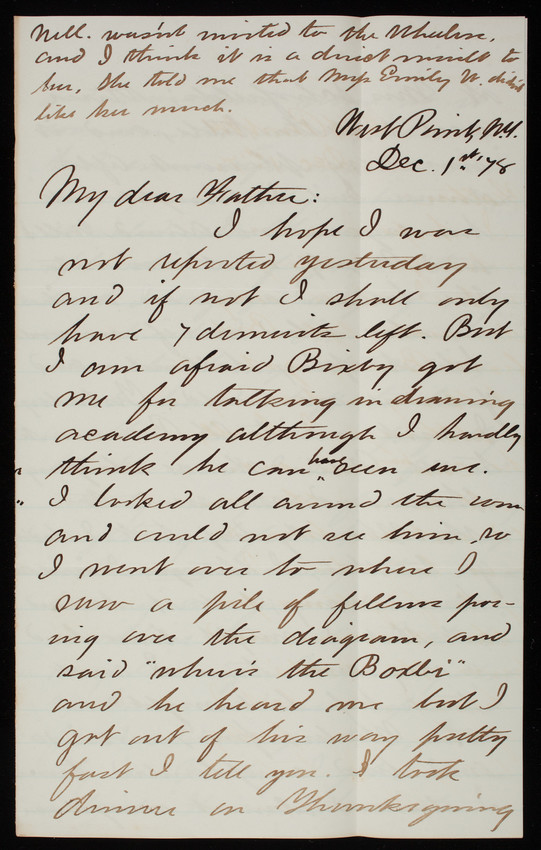 Nell. wasn't invited to the Wheelers,
and I think it is a direct insult to
her, She told me that Miss Emily W. didn't
like her much.
West Point, N.Y.
Dec. 1st. '78
My dear Father:
I hope I was
not reported yesterday
and if not I shall only
have 7 demerits left. But
I am afraid Bixby got
me for talking in drawing
academy although I hardly
think he can have seen me.
I looked all around the room
and could not see him, so
I went over to where I
saw a pile of fellows por-
ing over the diagram, and
said "where's the Boxbi"
and he heard me but I
got out of his way pretty
fast I tell you. I took
dinner on Thanksgiving